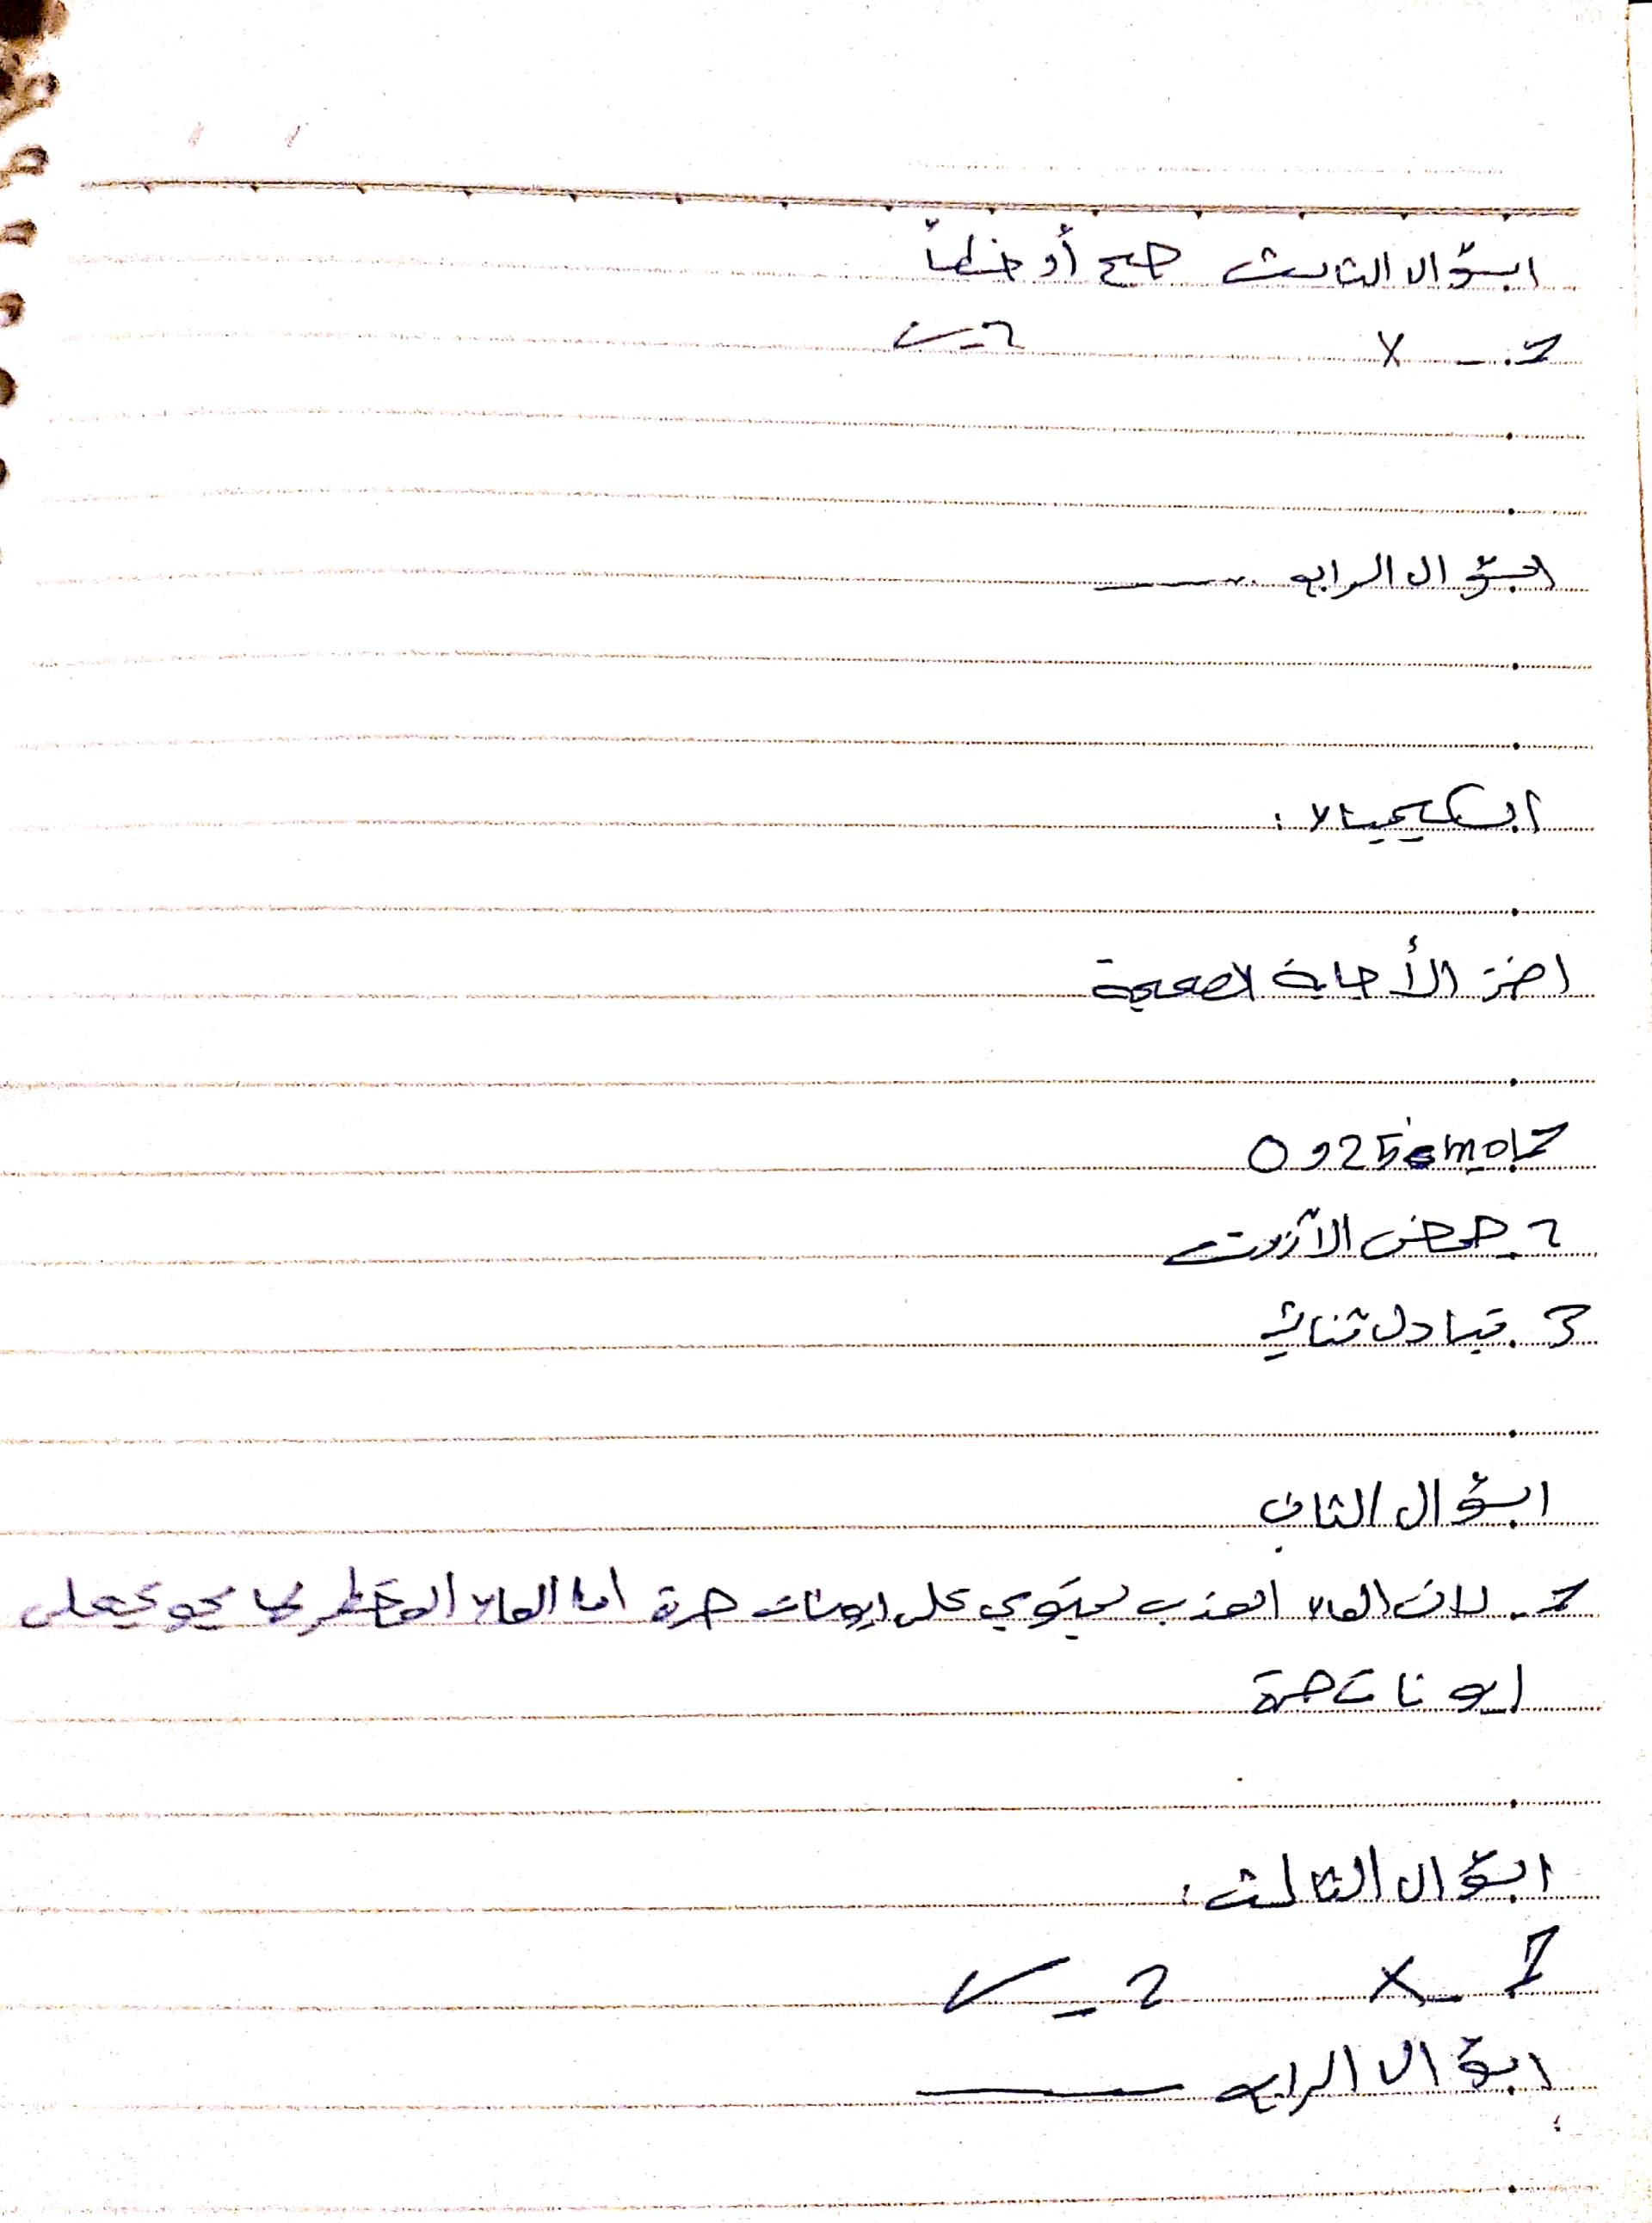 السؤال الثالث صح أو خطأ
1 - X 2 - ✓
السؤال الرابع ـــــ
الكيمياء :
اختر الأجابة الصحيحة
1- 0,25 mol
2 - حمض الآزوت
3 . تبادل ثنائي
السؤال الثاني
1 - لان الماء العذب يحتوي على ايونات حرة اما الماء المقطر لا يحوي على
ايونات حرة
السؤال الثالث :
1 - X 2 - ✓
السؤال الرابع ـــــ